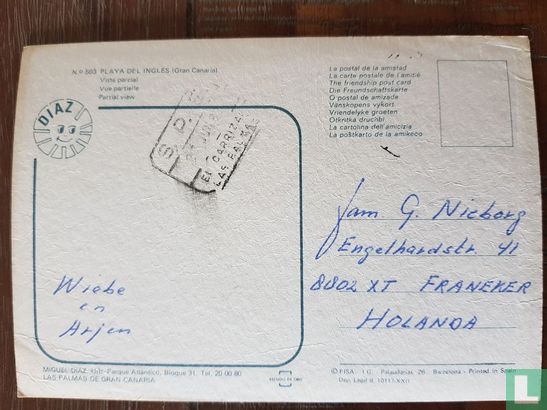 N.º 503 PLAYA DEL INGLES (Gran Canaria)
Vista parcial
Vue partielle
Partial view
DIAZ
S. D.
EL CARRIZAL
LAS PALMAS
Wiebe
en
Arjen
MIGUEL DIAZ Parque Atlántico, Bloque 31. Tel. 20 00 80
LAS PALMAS DE GRAN CANARIA
La postal de la amistad
La carte postale de l'amitié
The friendship post card
Die Freundschaftskarte
O postal de amizade
Vänskopens vykort
Vriendelyke groeten
Otkritka druchbi
La cartolina dell'amicizia
La poŝtkarto de la amikeco
Jam G. Nieborg
Engelhardstr. 41
8802 XT FRANEKER
HOLANDA
© FISA I.G. Palaudarias, 26 - Barcelona - Printed in Spain
Dep. Legal B. 10117-XXII
LastDodo